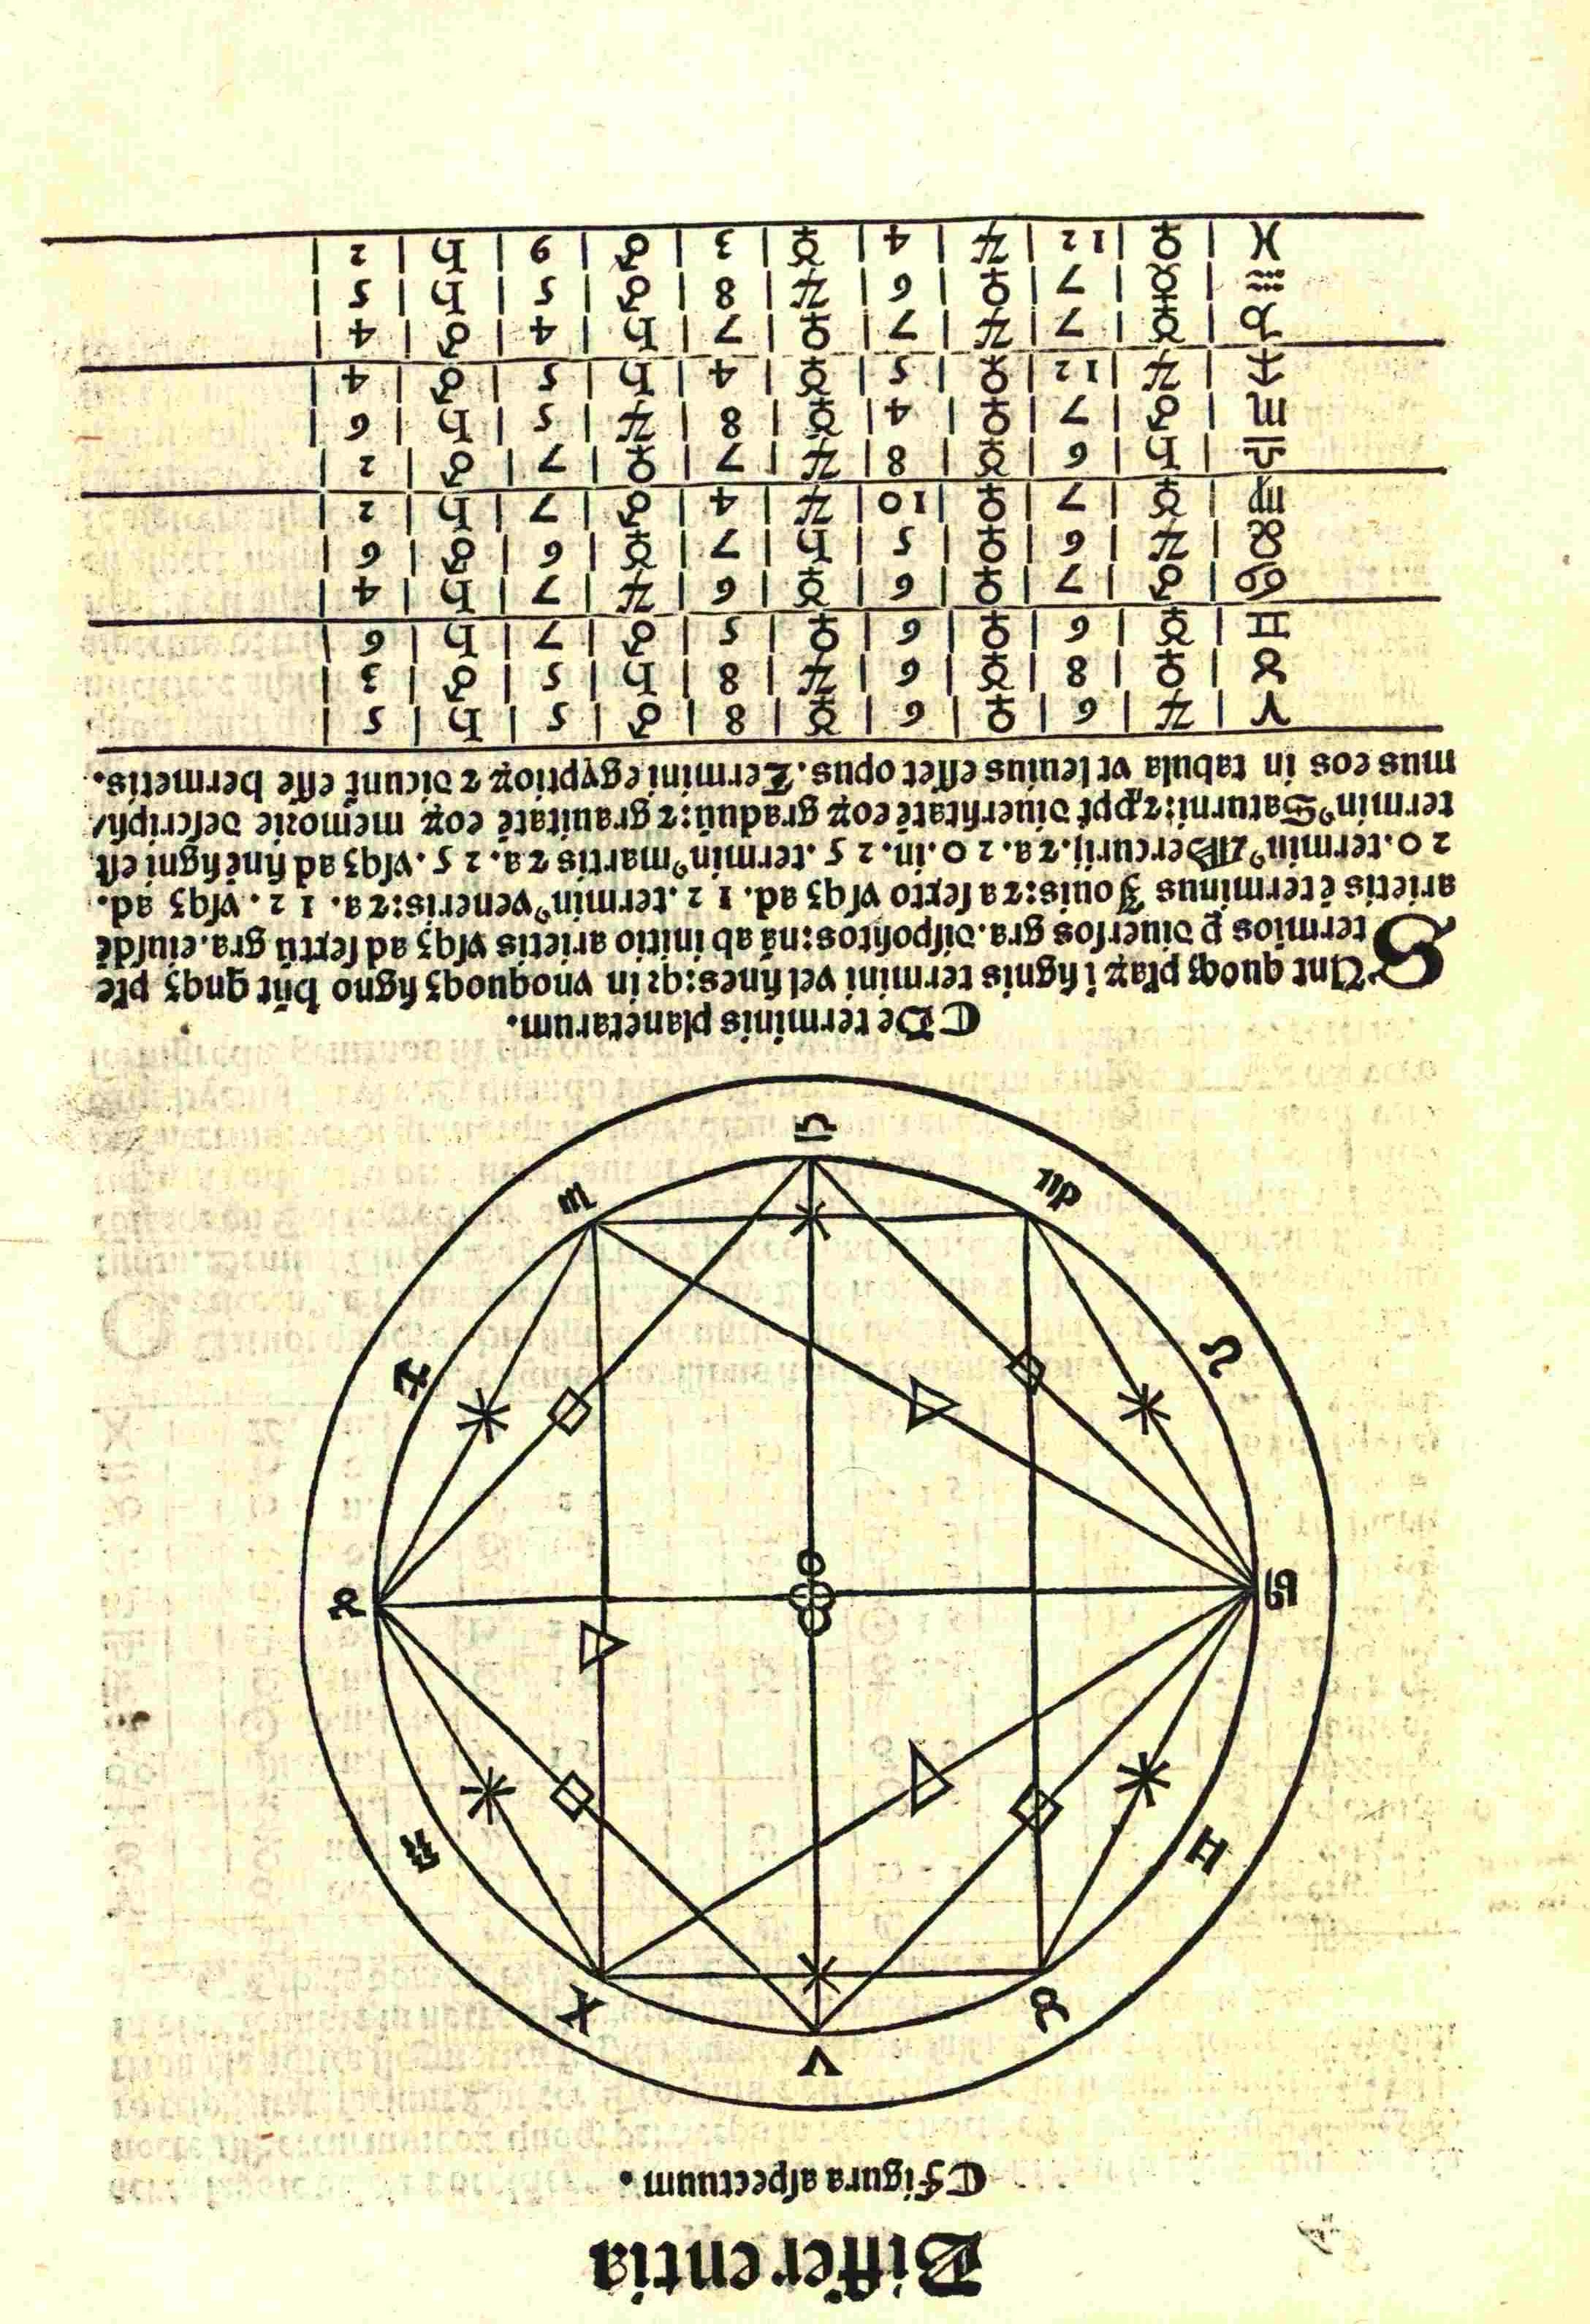 Differentia
⸿Figura aspectuum.
♈ ♉ ♊ ♋ ♌ ♍ ♎ ♏ ♐ ♑ ♒ ♓
⸿De terminis planetarum.
SUnt quoqꝫ plãꝝ ĩ signis termini vel fines:qꝛ in vnoquoqꝫ signo hñt quiqꝫ ple
termios ꝑ diuersos gra.dispositos:nã ab initio arietis vsqꝫ ad sextũ gra.eiusdẽ
arietis ẽ terminus Jouis:⁊a sexto vsqꝫ ad.12.terminꝰ veneris:⁊a.12.vsqꝫ ad.
20.terminꝰ Mercurij.⁊a.20.in.25.terminꝰ martis ⁊a.25.vsqꝫ ad finẽ signi est
terminꝰ Saturni:⁊ꝓpt diuersitatẽ eoꝝ graduũ:⁊ grauitatẽ eoꝝ memorie descripsi/
mus eos in tabula vt leuius esset opus.Termini egyptioꝝ ⁊ dicunt esse hermetis.
♈ | ♃ | 6 | ♀ | 6 | ☿ | 8 | ♂ | 5 | ♄ | 5 |
♉ | ♀ | 8 | ☿ | 6 | ♃ | 8 | ♄ | 5 | ♂ | 3 |
♊ | ☿ | 6 | ♀ | 6 | ♀ | 5 | ♂ | 7 | ♄ | 6 |
♋ | ♂ | 7 | ♀ | 6 | ☿ | 6 | ♃ | 7 | ♄ | 4 |
♌ | ♃ | 6 | ♀ | 5 | ♄ | 7 | ☿ | 6 | ♂ | 6 |
♍ | ☿ | 7 | ♀ | 10 | ♃ | 4 | ♂ | 7 | ♄ | 2 |
♎ | ♄ | 6 | ☿ | 8 | ♃ | 7 | ♀ | 7 | ♂ | 2 |
♏ | ♂ | 7 | ♀ | 4 | ☿ | 8 | ♃ | 5 | ♄ | 6 |
♐ | ♃ | 12 | ♀ | 5 | ☿ | 4 | ♄ | 5 | ♂ | 4 |
♑ | ☿ | 7 | ♃ | 7 | ♀ | 7 | ♄ | 4 | ♂ | 4 |
♒ | ☿ | 7 | ♀ | 6 | ♃ | 8 | ♂ | 5 | ♄ | 5 |
♓ | ♀ | 12 | ♃ | 4 | ☿ | 3 | ♂ | 9 | ♄ | 2 |